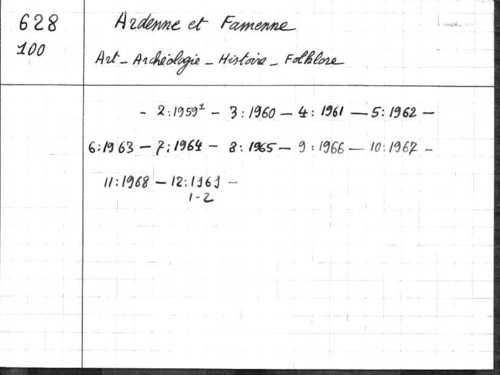 628 Ardenne et Famenne
100 Art - Archéologie - Histoire - Folklore
- 2:1959¹ - 3:1960 - 4:1961 - 5:1962 -
6:1963 - 7:1964 - 8:1965 - 9:1966 - 10:1967 -
11:1968 - 12:1969 -
1-2